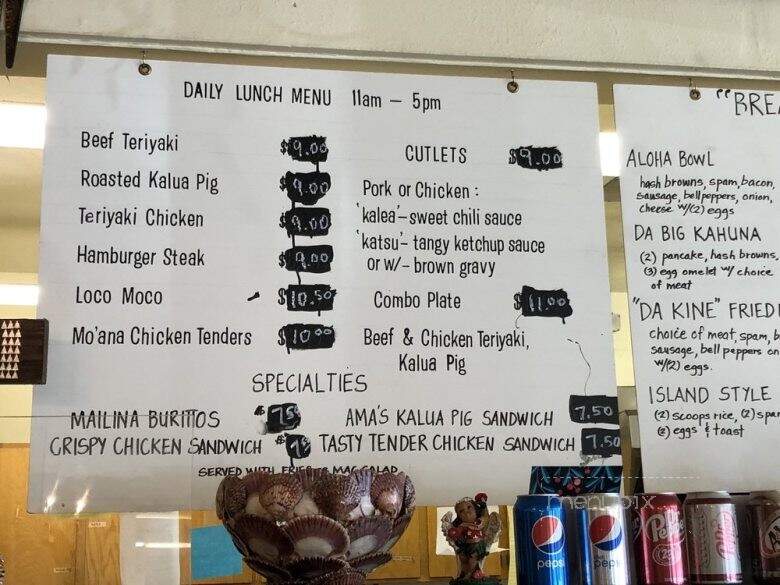 DAILY LUNCH MENU 11am - 5pm
Beef Teriyaki $9.00
Roasted Kalua Pig $9.00
Teriyaki Chicken $9.00
Hamburger Steak $9.00
Loco Moco $10.50
Mo'ana Chicken Tenders $10.00
CUTLETS $9.00
Pork or Chicken :
'kalea'- sweet chili sauce
'katsu'- tangy ketchup sauce
or w/- brown gravy
Combo Plate $11.00
Beef & Chicken Teriyaki,
Kalua Pig
SPECIALTIES
MAILINA BURITTOS
CRISPY CHICKEN SANDWICH
AMA'S KALUA PIG SANDWICH 7.50
TASTY TENDER CHICKEN SANDWICH 7.50
SERVED WITH FRIES & MAC SALAD
"BREA
ALOHA BOWL
hash browns, spam, bacon,
sausage, bell peppers, onion,
cheese w/(2) eggs
DA BIG KAHUNA
(2) pancake, hash browns,
(3) egg omelet w/ choice
of meat
"DA KINE" FRIED
choice of meat, spam, b
sausage, bell peppers on
w/(2) eggs.
ISLAND STYLE
(2) scoops rice, (2) spam
(2) eggs & toast
pepsi
pepsi
23